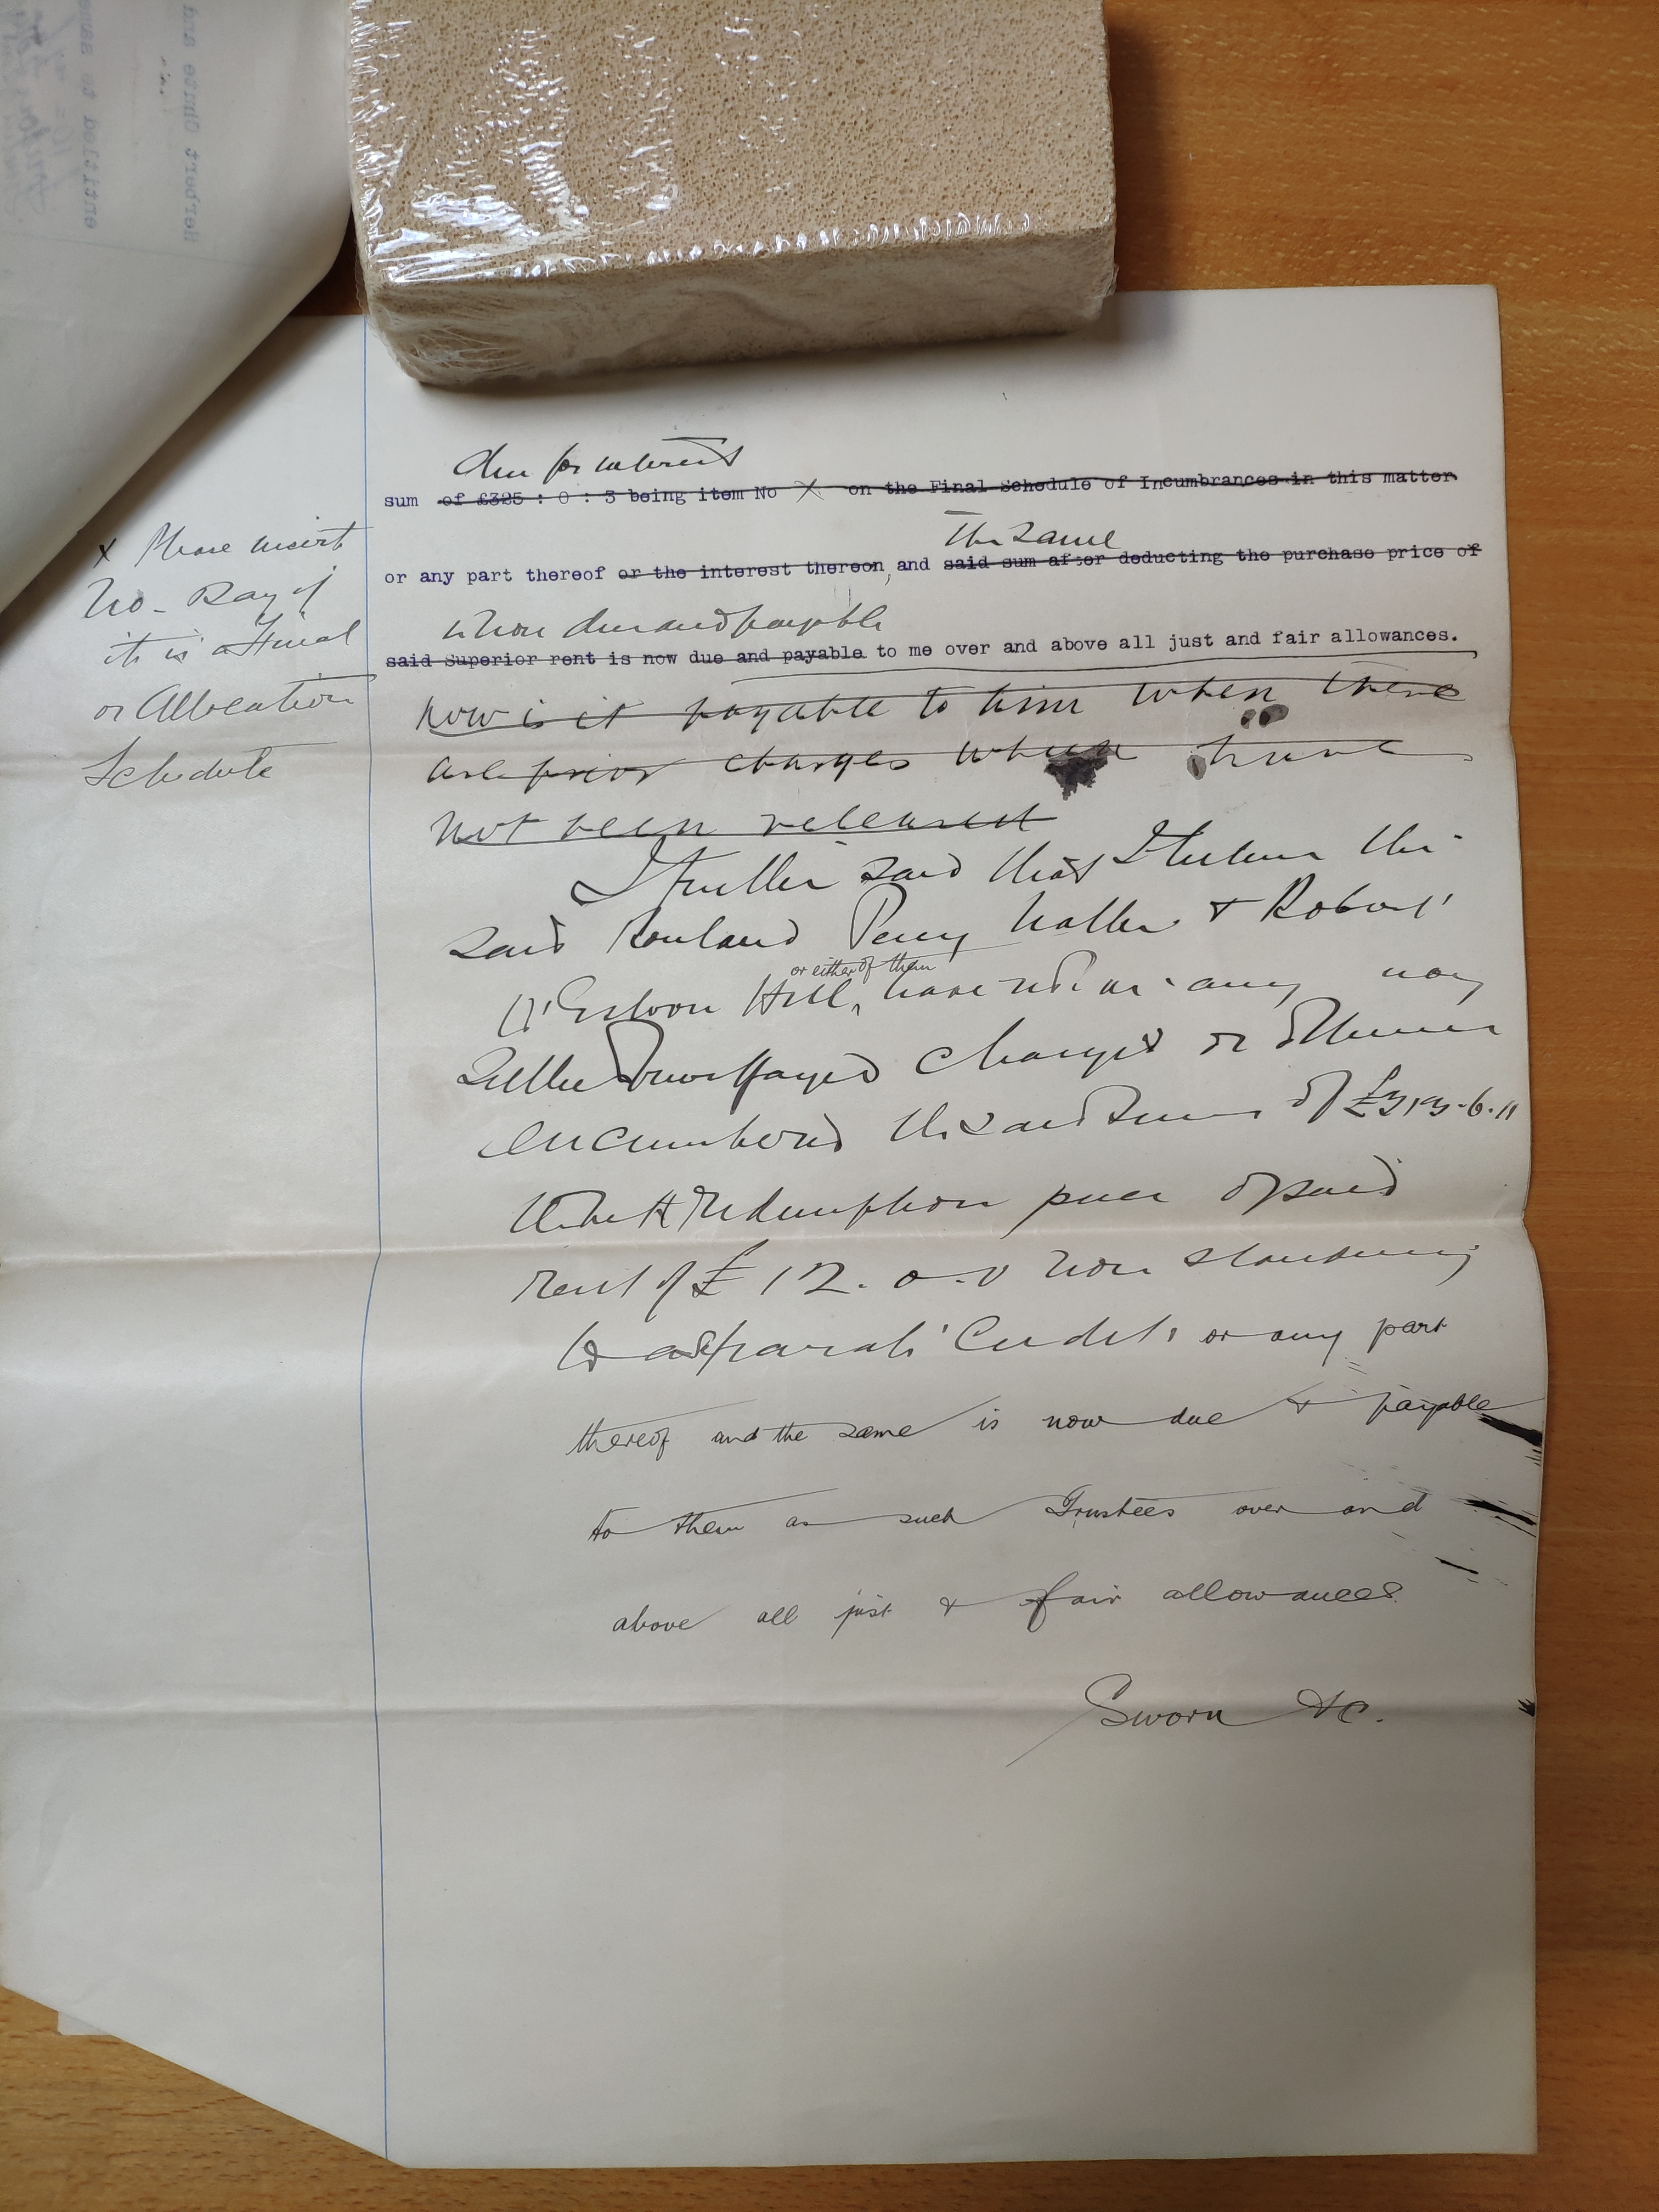 due for interest
sum of £325 : 0 : 3 being item No X on the Final Schedule of Incumbrances in this matter
The Same
or any part thereof or the interest thereon, and said sum after deducting the purchase price of
when due and payable
said Superior rent is now due and payable to me over and above all just and fair allowances.
X Please insert
No. Say if
it is a Final
or Allocation
Schedule
how is it payable to him when there
are prior charges which have
not been released
I further said that I believe the
said Rowland Percy Waller & Robert
Hill, have not in any way
or either of them
Settled Mortgaged Charged or otherwise
encumbered the said Sum of £313-6-11
redemption price of said
rent of £12. 0. 0 now standing
to a separate Credit or any part
thereof and the same is now due & payable
to them as such Trustees over and
above all just & fair allowances.
Sworn &c.
Herbert White and
entitled to same